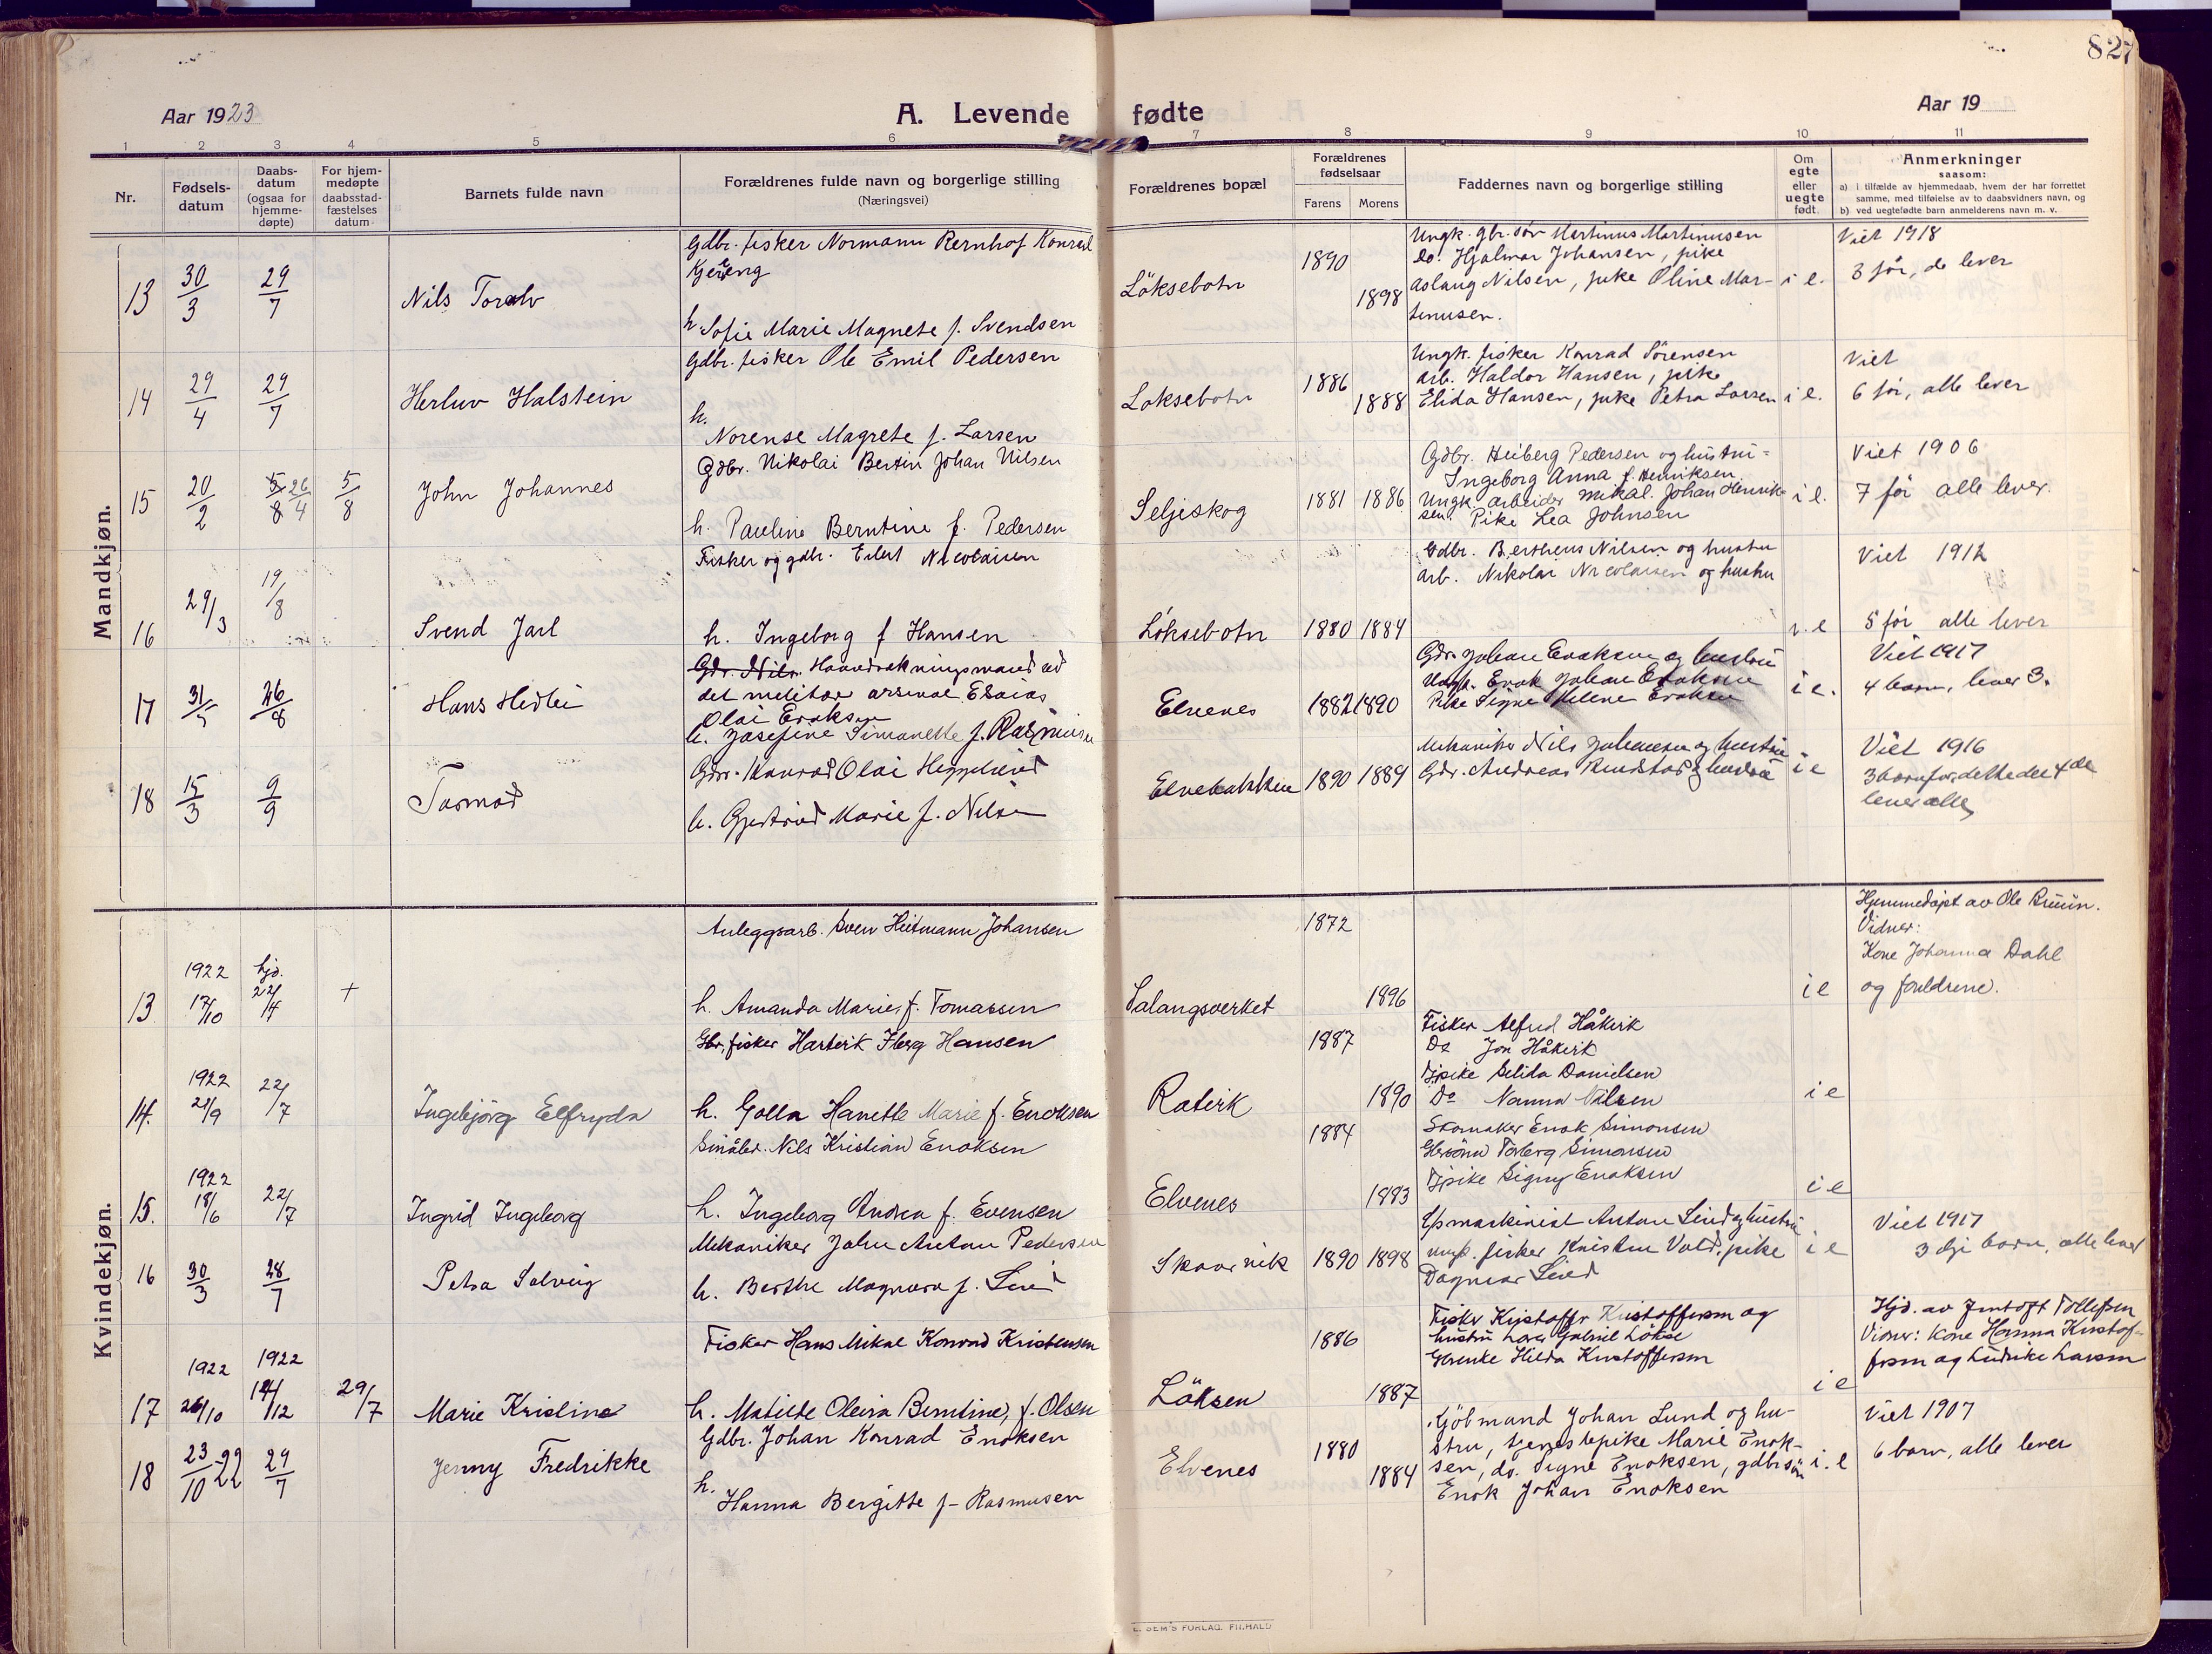 827
Aar 1923
A. Levende fødte
Aar 19
1 2 3 4 5 6 7 8 9 10 11
Nr.
Fødsels-
datum
Daabs-
datum
(ogsaa for
hjemme-
døpte)
For hjem-
medøpte
daabsstad-
fæstelses
datum
Barnets fulde navn
Forældrenes fulde navn og borgerlige stilling
(Næringsvei)
Forældrenes bopæl
Forældrenes
fødselsaar
Farens Morens
Faddernes navn og borgerlige stilling
Om
egte
eller
uegte
født.
Anmerkninger
saasom:
a) i tilfælde av hjemmedaab, hvem der har forrettet
samme, med tilføielse av to daabsvidners navn, og
b) ved uegtefødte barn anmelderens navn m. v.
Mandkjøn.
13 30/3 29/7 Nils Toralv
Gdbr. fisker Normann Bernhof Konrad
Gjereng
h. Sofie Marie Magnete f. Svendsen
Löksebotn 1890 1898
Ungk. gbr. søn Martinus Martinusen
do. Hjalmar Johansen, pike
Aslaug Nilsen, pike Oline Mar-
tinusen.
i e.
Viet 1918
3 før, de lever
14 29/4 29/7 Herluv Halstein
Gdbr. fisker Ole Emil Pedersen
h.
Norense Magrete f. Larsen
Loksebotn 1886 1888
Ungk. fisker Konrad Sörensen
arb. Haldor Hansen, pike
Elida Hansen, pike Petra Larsen
i e.
Viet
6 før, alle lever
15 20/2 5/8 26/4 5/8 John Johannes
Gdbr. Nikolai Bertin Johan Nilsen
h. Pauline Berntine f. Pedersen
Seljeskog 1881 1886
Gdbr. Heiberg Pedersen og hustru =
Ingeborg Anna f. Henriksen
Ungk. arbeider Mikal Johan Henrik-
sen. Pike Lea Johnsen
i e.
Viet 1906
7 før alle lever.
16 29/3 19/8 Svend Jarl
Fisker og gdbr. Edert Nicolaisen
h. Ingeborg f Hansen
Löksebotn 1880 1884
Gdbr. Berthens Nilsen og hustru
Arb. Nikolai Nicolaisen og hustru
i. e
Viet 1912
5 før alle lever
17 31/3 26/8 Hans Hedlei
Gdr. Nils. Haandrækningsmand ved
det militær arsenal Esaias
Olai Enoksen
h. Josefine Simonette f. Rasmusen
Elvenes 1882 1890
Gdr. Johan Enoksen og hustru
Ungk. Enok Johan Enoksen
Pike Signe Helene Enoksen
i e.
Viet 1917
4 barn, lever 3.
18 15/3 9/9 Tormod
Gdbr. Konrad Olai Heggelund
h. Gjertrud Marie f. Nilsen
Elvebakken 1890 1889
Mekaniker Nils Johansen og hustru
Gdr. Andreas Rudstad og hustru
i e
Viet 1916
3 barn før, dette den 4de
lever alle
Kvindekjøn.
13 1922 17/10 hjd. 22/4 +
Anleggsarb. Sven Heitmann Johansen
h. Amanda Marie, f. Tomassen
Salangsverket 1872 1896
i e
Hjemmedøpt av Ole Bruun.
Vidner:
Kone Johanna Dahl
og foreldrene.
14. 1922 21/9 22/7 Ingebjörg Elfryda
Gbr. fisker Hartvik Iberg Hansen
h. Golla Hanette Marie f. Enoksen
Rotvik 1887 1890
Fisker Alfred Håkvik
Do Jon Håkvik
Tj.pike Selida Danielsen
Do Nanna Nilsen
i e
15. 1922 18/6 22/7 Ingrid Ingeborg
Småbr. Nils Kristian Enoksen
h. Ingeborg Andrea f. Evensen
Elvenes 1884 1883
Skomaker Enok Simonsen
Gbrsönn Torberg Simonsen
Tjpike Signy Enoksen
i e
16 30/3 28/7 Petra Solveig
Mekaniker John Antan Pedersen
h. Berthe Magnora f. Lind
Skaarvik 1890 1898
E/s maskinist Anton Lind og hustru
ungk. fisker Kristen Vold, pike
Dagmar Lind
i e
Viet 1917
3dje barn, alle lever
17 1922 26/10 1922 14/12 29/7 Marie Kristine
Fisker Hans Mikal Konrad Kristensen
h. Matilde Oleira Berntine, f. Olsen
Löksen 1886 1887
Fisker Kristoffer Kristoffersen og
hustru Lars Gabriel Lökse
Gbrenke Hilda Kristoffersen
i e
Hjd. av Jentoft Tollefsen
Vidner: Kone Hanna Kristof-
fersen og Ludvike Larsen
18 23/10 22 29/7 Jenny Fredrikke
Gdbr. Johan Konrad Enoksen
h.
Hanna Bergitte f. Rasmusen
Elvenes 1880 1884
Gjöbmand Johan Lund og hu-
stru, tjenestepike Marie Enok-
sen, do. Signe Enoksen, gdbrsön
Enok Johan Enoksen
i. e
Viet 1907
6 barn, alle lever
E. SEM'S FORLAG, FR.HALD